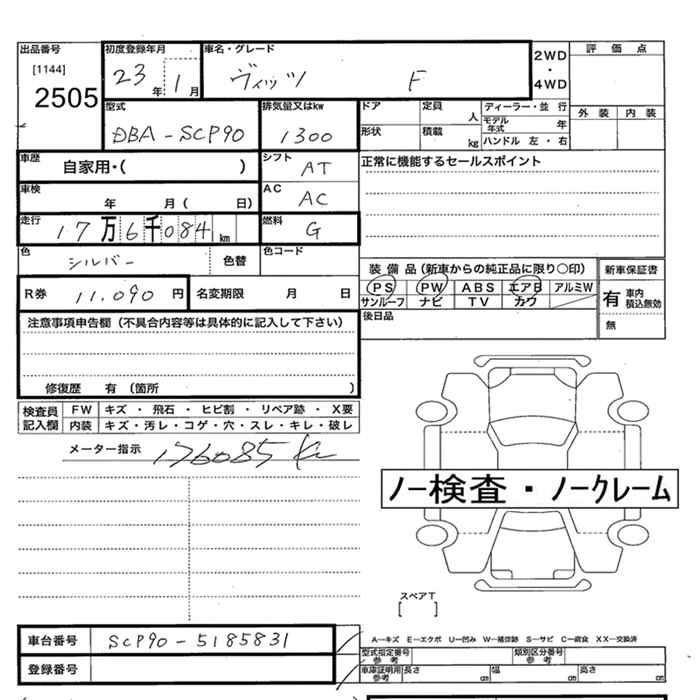 出品番号 [1144] 2505
初度登録年月 23年 1月
車名・グレード ヴィッツ F
2WD・4WD
評価点
外装 内装
型式 DBA-SCP90
排気量又はkw 1300
ドア 定員 人
形状 積載 kg
ディーラー・並行
モデル年式 年
ハンドル 左・右
車歴 自家用・( )
シフト AT
正常に機能するセールスポイント
車検 年 月( 日)
AC AC
走行 17万6千084km
燃料 G
色 シルバー 色替
色コード
装備品(新車からの純正品に限り○印)
新車保証書
PS PW ABS エアB アルミW
サンルーフ ナビ TV カワ
有 車内積込無効
無
R券 11.090円
名変期限 月 日
後日品
注意事項申告欄(不具合内容等は具体的に記入して下さい)
修復歴 有(箇所 )
検査員記入欄
FW キズ・飛石・ヒビ割・リペア跡・X要
内装 キズ・汚レ・コゲ・穴・スレ・キレ・破レ
メーター指示 176085 K
ノー検査・ノークレーム
スペアT
[ ]
車台番号 SCP90-5185831
登録番号
A-キズ E-エクボ U-凹み W-補修跡 S-サビ C-腐食 XX-交換済
型式指定番号 参考
類別区分番号 参考
車庫証明用参考 長さ cm 幅 cm 高さ cm